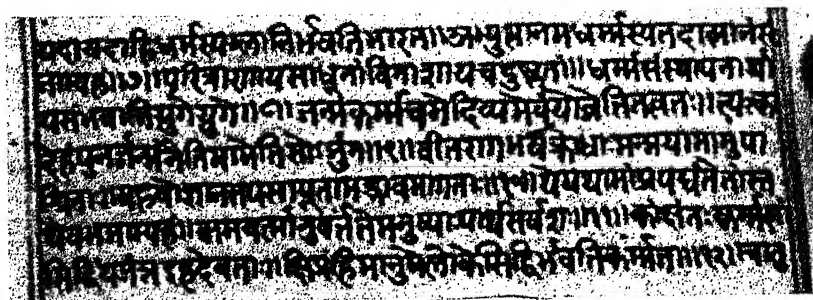 यदायदाहिधर्म्मस्यग्लानिर्भवतिभारत॥अभ्युत्थानमधर्म्मस्यतदात्मानंसृ
जाम्यहं॥७॥परित्राणायसाधूनांविनाशायचदुष्कृतां॥धर्म्मसंस्थापनार्था
यसंभवामियुगेयुगे॥८॥जन्मकर्म्मचमेदिव्यमेवंयोवेत्तितत्वतः॥त्यक्त्वा
देहंपुनर्जन्मनैतिमामेतिसोर्जुन॥९॥वीतरागभयक्रोधामन्मयामामुपा
श्रिताः॥बहवोज्ञानतपसापूतामद्भावमागताः॥१०॥येयथामांप्रपद्यंतेतांस्त
थैवभजाम्यहं॥ममवर्त्मानुवर्त्तंतेमनुष्याःपार्थसर्वशः॥११॥कांक्षंतःकर्म्मणां
सिद्धिंयजंतइहदेवताः॥क्षिप्रंहिमानुषेलोकेसिद्धिर्भवतिकर्म्मजा॥१२॥चातु